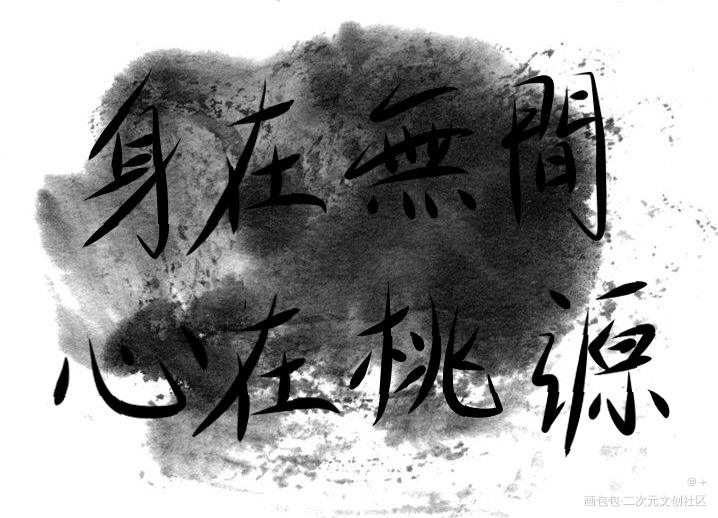 身在無間
心在桃源
@+
画包包·二次元文创社区